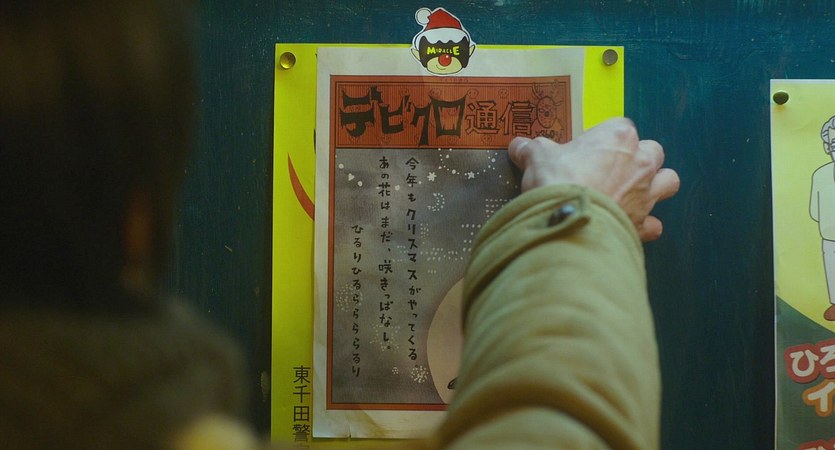 MIRACLE
デビクロ通信
今年もクリスマスがやってくる
あの花はまだ、咲きっぱなし。
ひるりひるらららららるり
東千田警
ひろ
イ